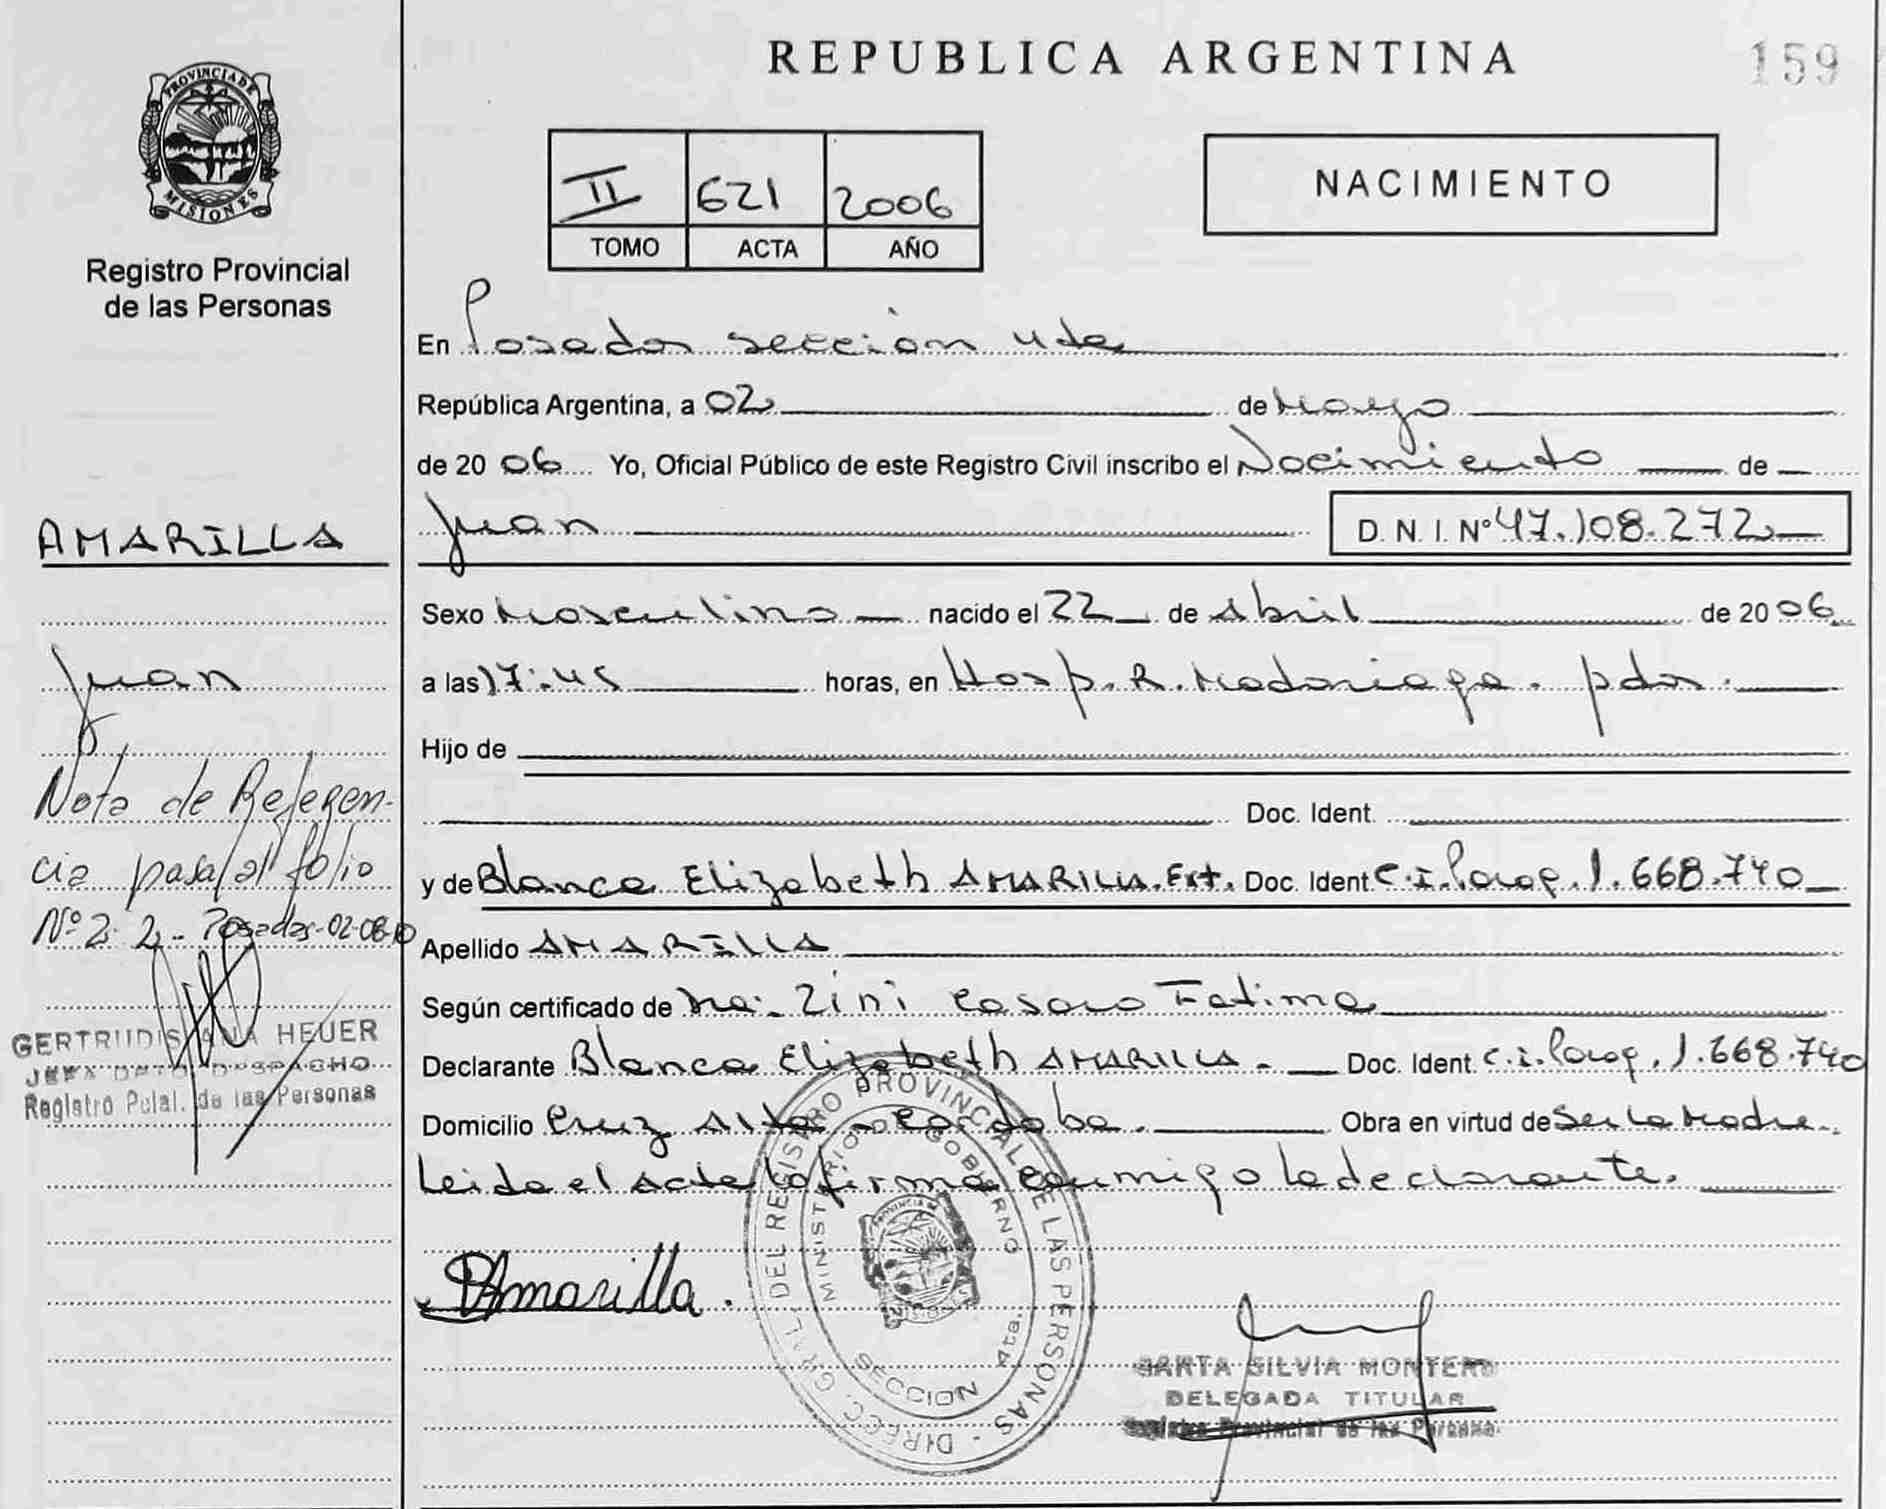 REPUBLICA ARGENTINA
159
PROVINCIA DE
MISIONES
Registro Provincial
de las Personas
II 621 2006
TOMO ACTA AÑO
NACIMIENTO
En Posadas sección 4ta
República Argentina, a 02 de Mayo
de 20 06 Yo, Oficial Público de este Registro Civil inscribo el Nacimiento de
Juan D.N.I. Nº 47.108.272
AMARILLA
Juan
Sexo Masculino nacido el 22 de Abril de 20 06
a las 17:45 horas, en Hosp. R. Madariaga. pdas.
Hijo de
Doc. Ident.
y de Blanca Elizabeth AMARILLA. Ext. Doc. Ident C.I. Parag. 1.668.740
Apellido AMARILLA
Según certificado de Zini Casaro Fatima
Declarante Blanca Elizabeth AMARILLA. Doc. Ident. C.I. Parag. 1.668.740
Domicilio Cruz Alta - Cordoba. Obra en virtud de Ser la Madre.
Leida el acta la firma conmigo la declarante.
Nota de Referen-
cia pasa al folio
Nº 22 - Posadas-02-08-10
GERTRUDIS ANA HEUER
JEFA DPTO. DESPACHO
Registro Pcial. de las Personas
BAmarilla.
DIREC. GRAL. DEL REGISTRO PROVINCIAL DE LAS PERSONAS
MINISTERIO DE GOBIERNO
SECCION 4ta.
SILVIA MONTERO
DELEGADA TITULAR
Registro Provincial de las Personas